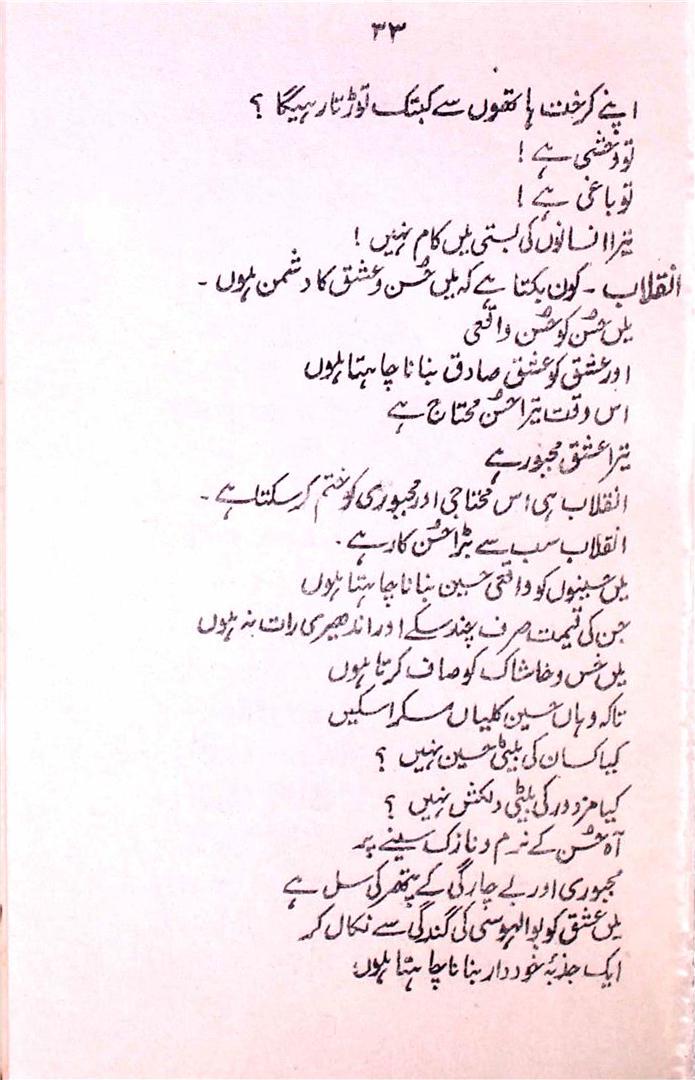 ۳۳
اپنے کرخت ہاتھوں سے کبتک توڑتا رہیگا ؟
تو وحشی ہے !
تو باغی ہے !
تیرا انسانوں کی بستی میں کام نہیں !
انقلاب ۔ کون بکتا ہے کہ میں حُسن و عشق کا دشمن ہوں ۔
میں حُسن کو حُسن واقعی
اور عشق کو عشق صادق بنانا چاہتا ہوں
اس وقت تیرا حُسن محتاج ہے
تیرا عشق مجبور ہے
انقلاب ہی اس محتاجی اور مجبوری کو ختم کر سکتا ہے ۔
انقلاب سب سے بڑا حُسن کار ہے ۔
میں حسینوں کو واقعی حسین بنانا چاہتا ہوں
جن کی قیمت صرف چند سکے اور اندھیری رات نہ ہوں
میں خس و خاشاک کو صاف کرتا ہوں
تاکہ وہاں حسین کلیاں مسکرا سکیں
کیا کسان کی بیٹی حسین نہیں ؟
کیا مزدور کی بیٹی دلکش نہیں ؟
آہ حُسن کے نرم و نازک سینے پر
مجبوری اور بے چارگی کے پتھر کی سل ہے
میں عشق کو بوالہوسی کی گندگی سے نکال کر
ایک جذبۂ خوددار بنانا چاہتا ہوں